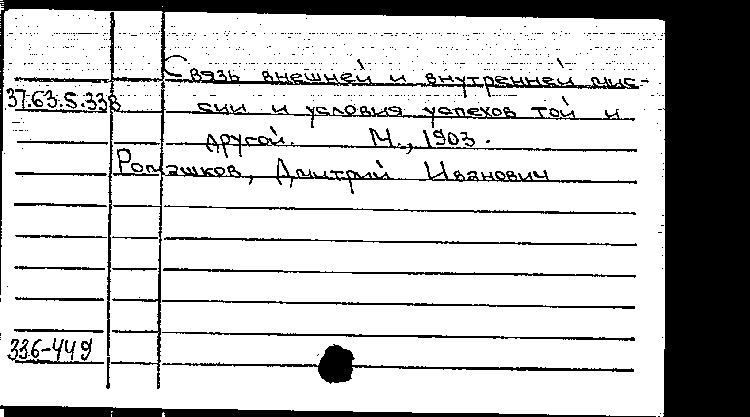 Связь внешней и внутренней мис-
37.63.5.338 сии и условия успехов той и
другой. М., 1903.
Ромашков, Дмитрий Иванович
336-449